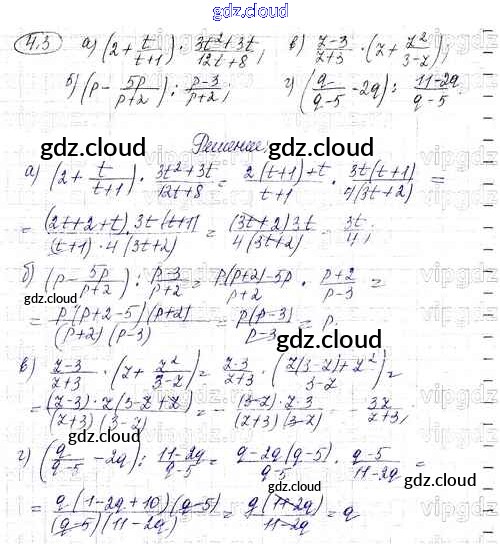 gdz.cloud
4.3 а) (2 + t/(t+1)) · (3t²+3t)/(12t+8); в) (z-3)/(z+3) · (z + z²/(3-z));
gdz.cloud gdz.cloud
б) (p - 5p/(p+2)) : (p-3)/(p+2); г) (q/(q-5) - 2q) : (11-2q)/(q-5).
Решение,
gdz.cloud gdz.cloud
а) (2 + t/(t+1)) · (3t²+3t)/(12t+8) = (2(t+1)+t)/(t+1) · 3t(t+1)/4(3t+2) =
= (2t+2+t) · 3t(t+1)/(t+1) · 4(3t+2) = (3t+2)3t/4(3t+2) = 3t/4;
gdz.cloud
б) (p - 5p/(p+2)) : (p-3)/(p+2) = (p(p+2)-5p)/(p+2) · (p+2)/(p-3) =
gdz.cloud gdz.cloud
= p(p+2-5)(p+2)/(p+2)(p-3) = p(p-3)/(p-3) = p,
gdz.cloud
в) (z-3)/(z+3) · (z + z²/(3-z)) = (z-3)/(z+3) · (z(3-z)+z²)/(3-z) =
gdz.cloud gdz.cloud
= (z-3) · z(3-z+z)/(z+3)(3-z) = - (3-z) · z · 3/(z+3)(3-z) = - 3z/(z+3);
gdz.cloud
г) (q/(q-5) - 2q) : (11-2q)/(q-5) = (q-2q(q-5))/(q-5) · (q-5)/(11-2q) =
gdz.cloud gdz.cloud
= q(1-2q+10)(q-5)/(q-5)(11-2q) = q(11-2q)/(11-2q) = q